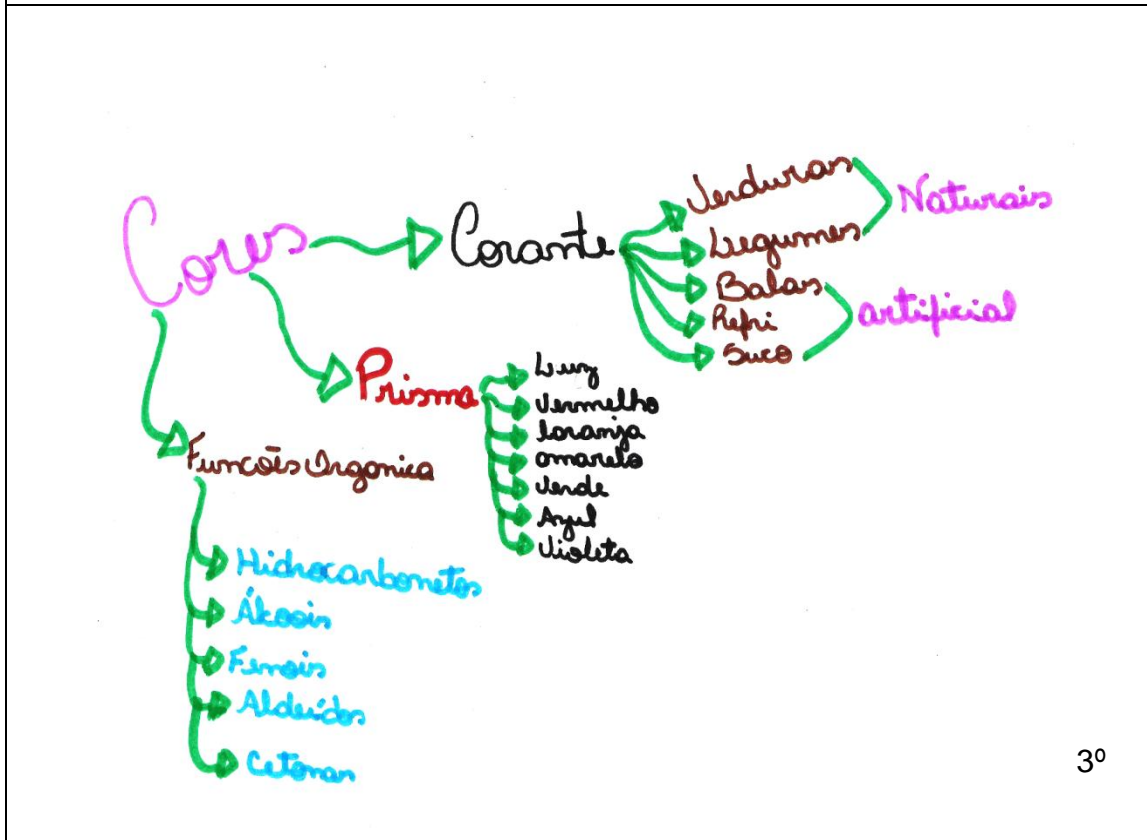 Cores
Corante
Verduras
Legumes
Naturais
Balas
Refri
Suco
artificial
Prisma
Luz
Vermelho
laranja
amarelo
Verde
Azul
Violeta
Funcões Organica
Hidrocarbonetos
Álcoois
Fenois
Aldeídos
Cetonas
3º